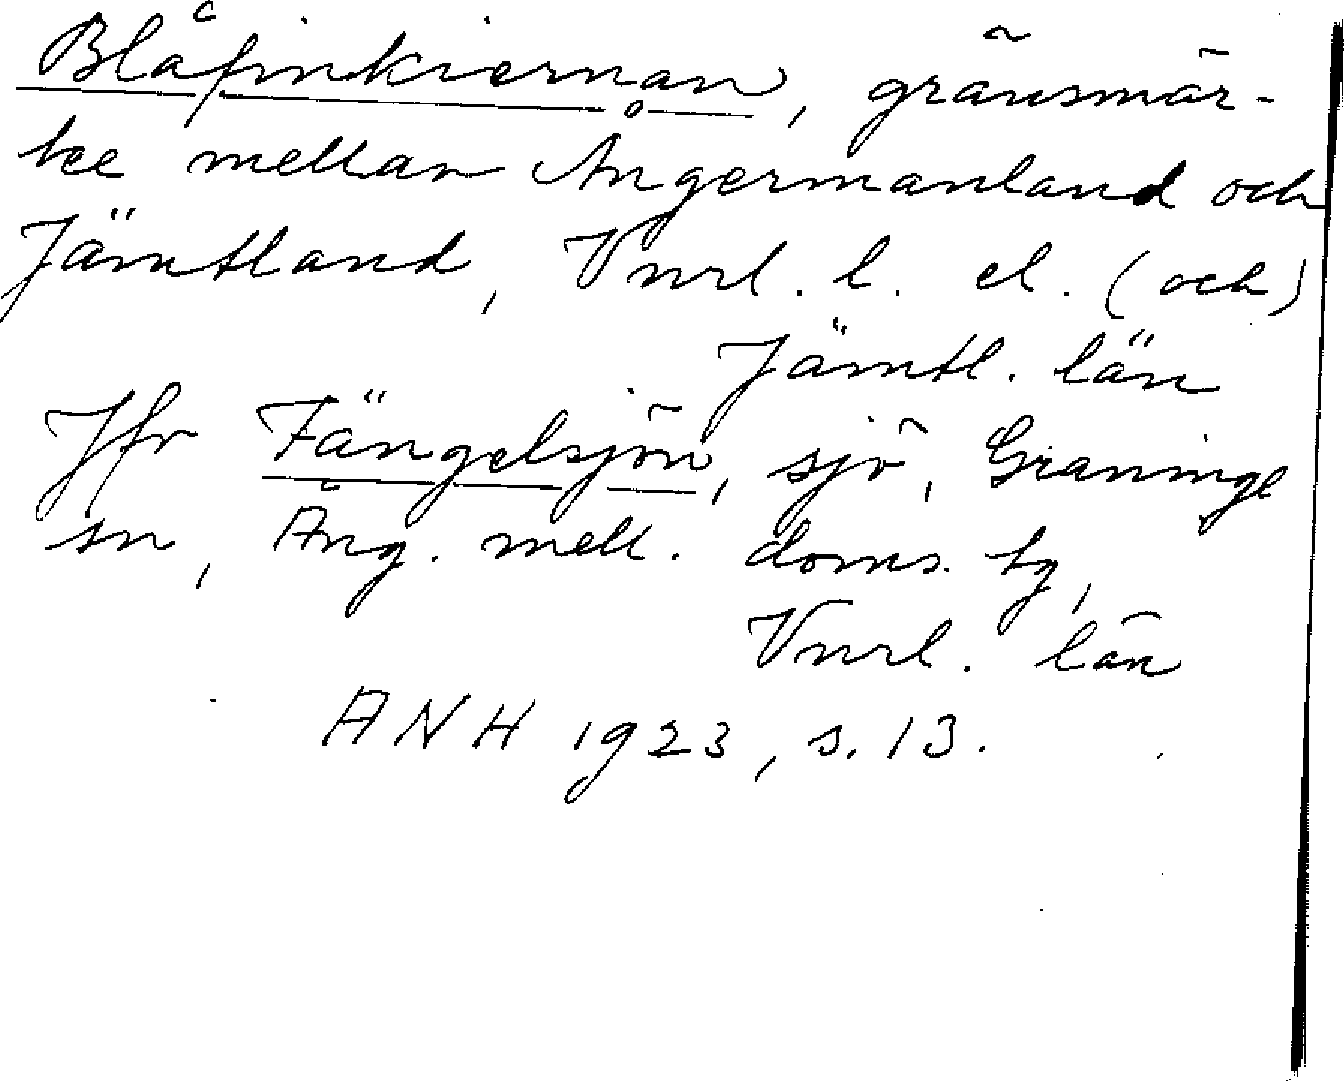 Blåfinkiernan, gränsmär-
ke mellan Ångermanland och
Jämtland, Vnrl. l. el. (och)
Jämtl. län
Jfr Fängelsjön, sjö, Graninge
sn, Ång. mell. doms. tg,
Vnrl. län
ANH 1923, s. 13.